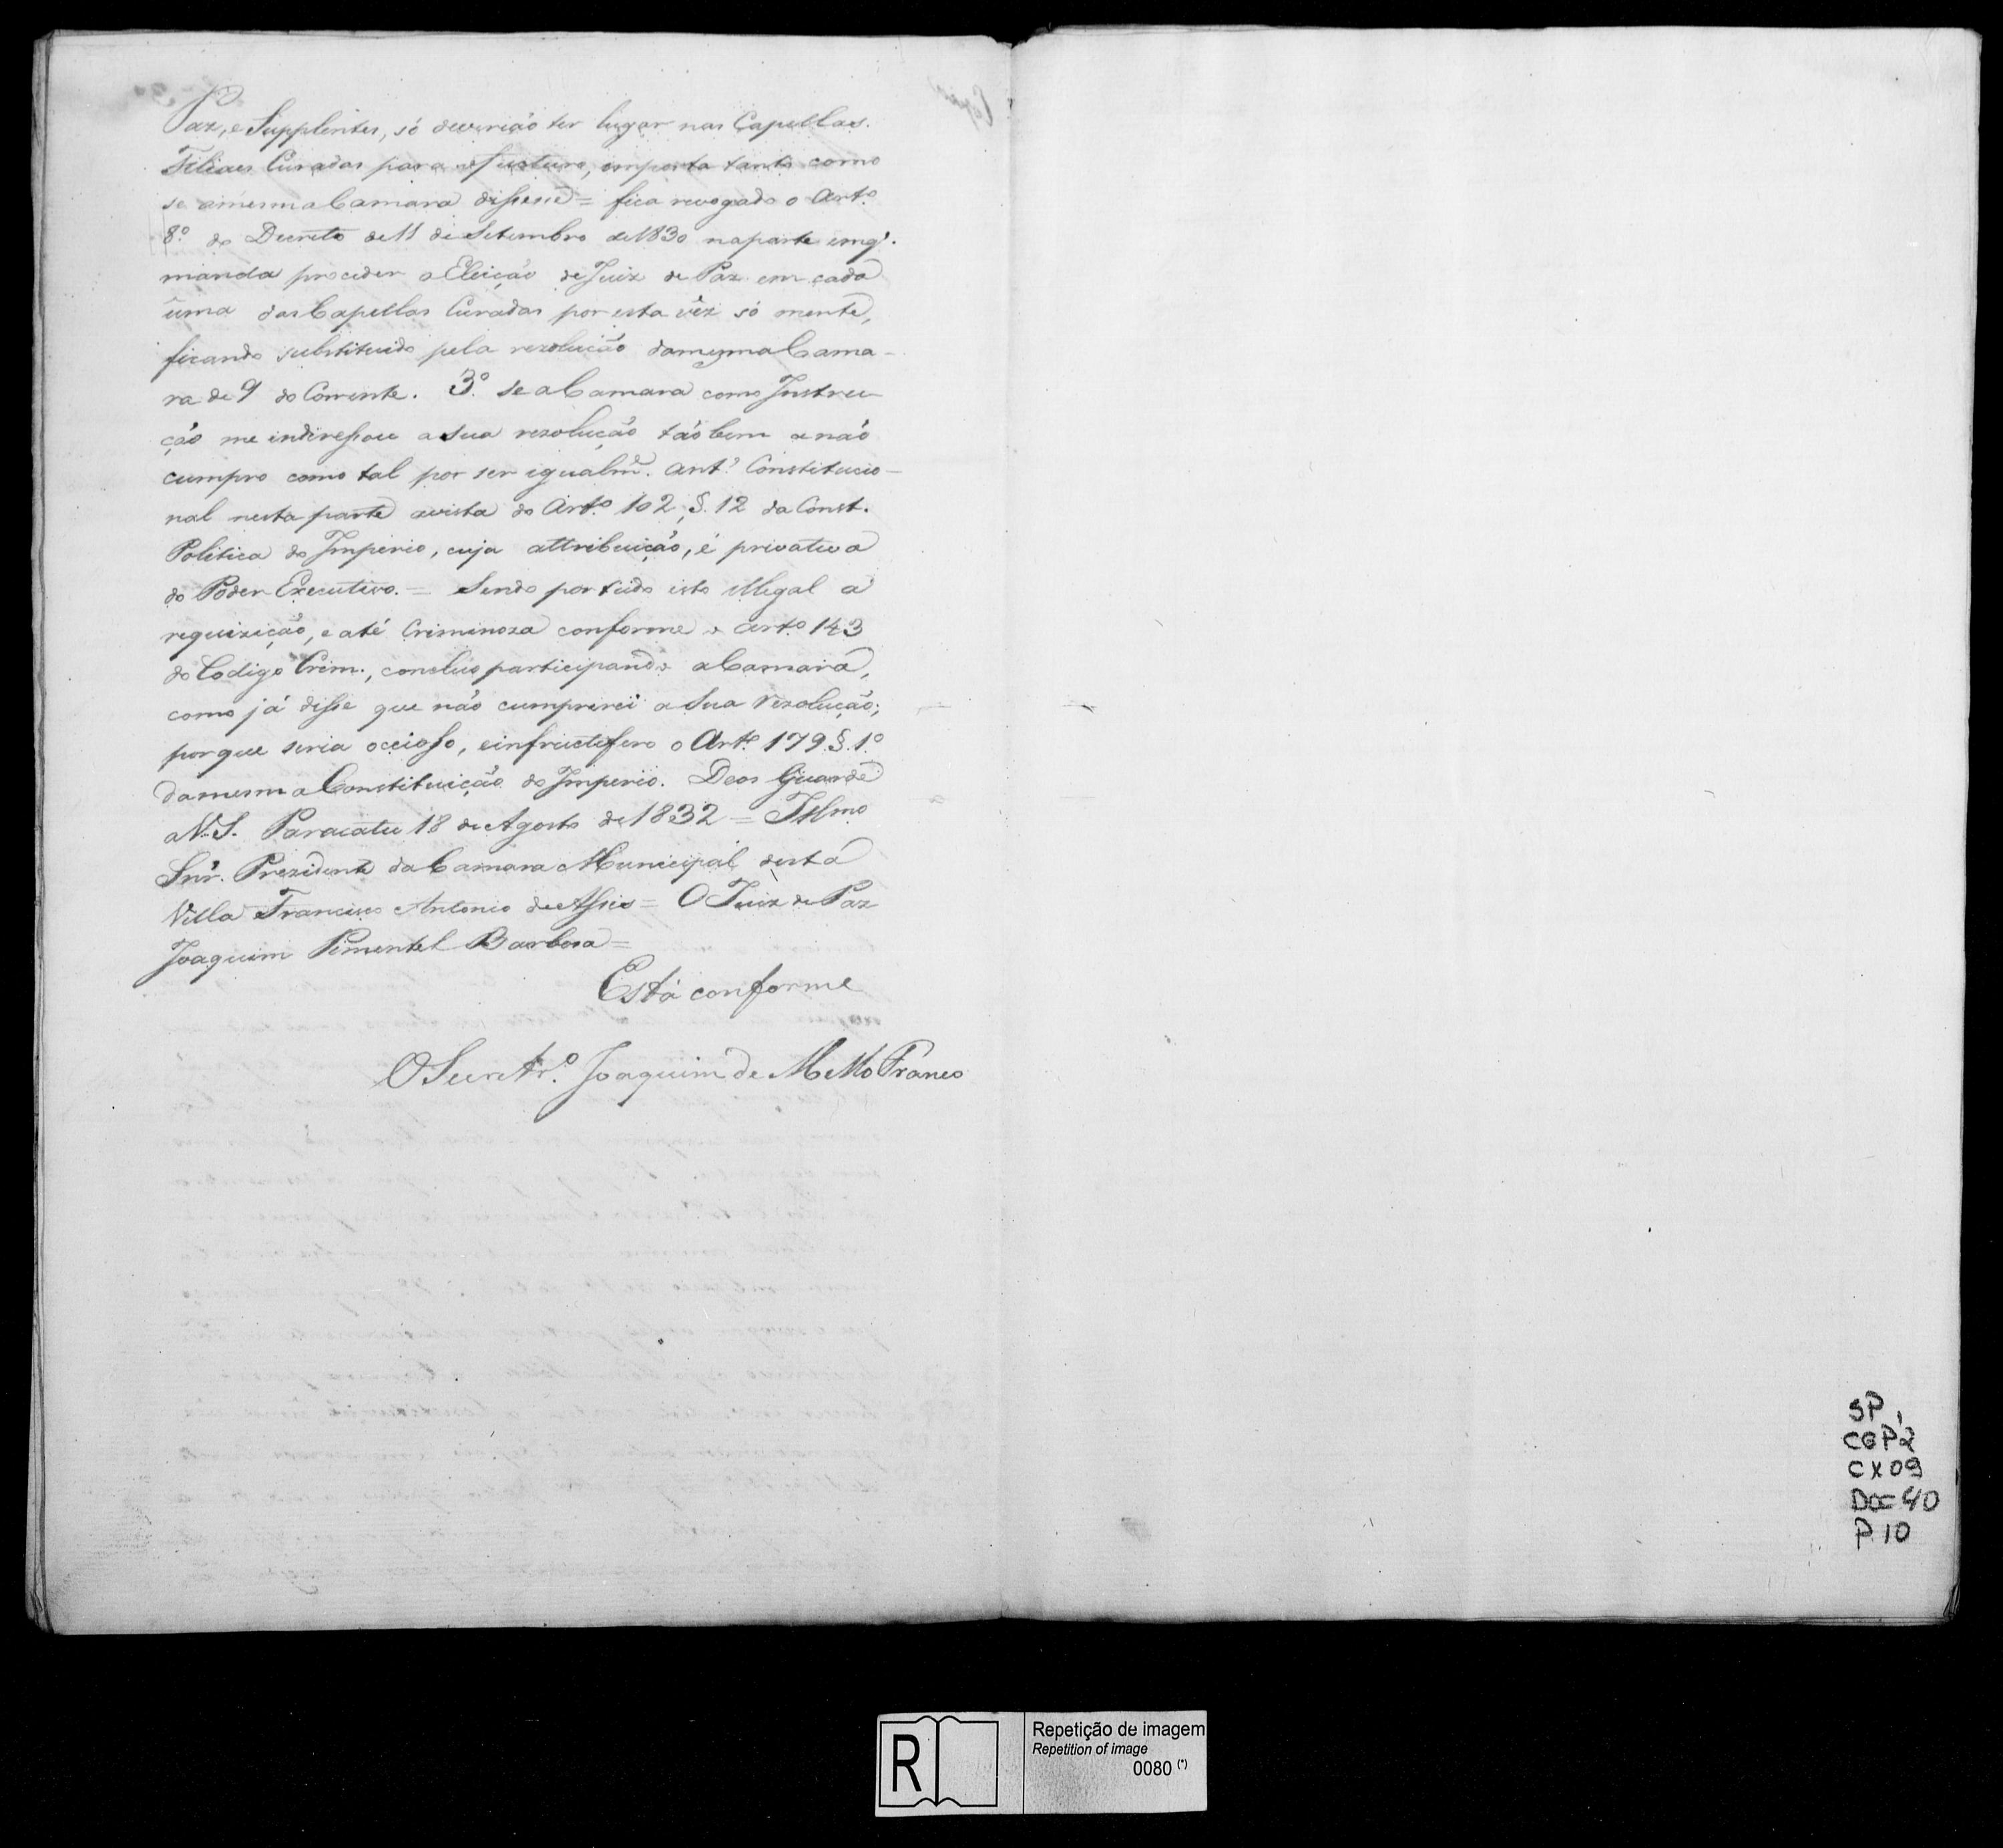 Paz, e Supplentes, só deverião ter lugar nas Capellas.
Filiaes Curadas para o fucturo, importa tanto como
se amesma Camara dissesse = fica revogado o Artº
8º do Decreto de 11 de Setembro de 1830 naparte emq.
manda proceder a Eleição de Juiz de Paz em cada
uma das Capellas Curadas por esta vêz só mente,
ficando substituido pela rezolução damesma Cama-
ra de 9 do Corrente. 3º se a Camara como Instru-
ção me indiressou a sua rezolução tão bem a não
cumpro como tal por ser igualmᵉ. ant' Constitucio-
nal nesta parte avista do Artº 102, §. 12 da Const.
Politica do Imperio, cuja attribuição, é privativa
do Poder Executivo. = Sendo por tudo isto illegal a
requizição, e até Criminoza conforme o artº 143
do Codigo Crim., concluo participando a Camara,
como já disse que não cumprirei a Sua rezolução;
porque seria occiozo, einfructifero o Artº 179 §. 1º
damesma Constituição do Imperio. Deos Guarde
a V. S. Paracatu 18 de Agosto de 1832 = Illmo
Snr. Prezidente da Camara Municipal desta
Villa Francisco Antonio de Assis = O Juiz de Paz
Joaquim Pimentel Barbosa =
Está conforme
O Secretrº. Joaquim de Mello Franco
SP
CGP2
CX09
DOC 40
P. 10
R
Repetição de imagem
Repetition of image
0080 (*)